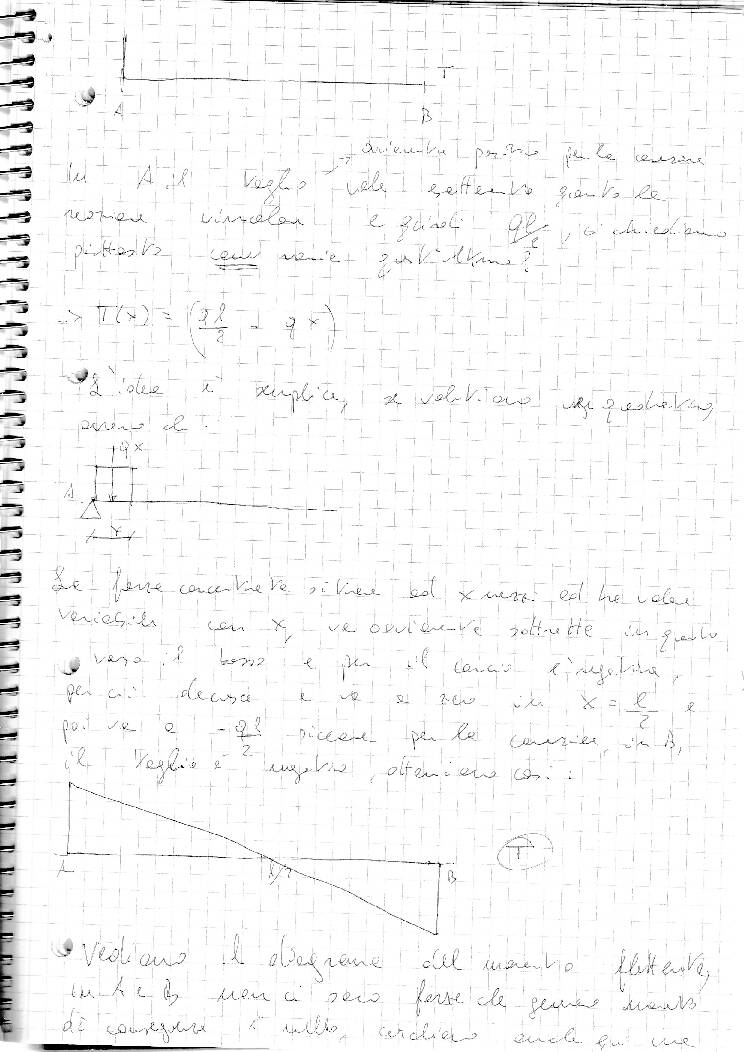 T
A B
ovviamente positivo per la convenzione
In A il Taglio vale esattamente quanto la
reazione vincolare e quindi ql/2, ci chiediamo
piuttosto come varia quest'ultimo?
-> T(x) = (ql/2 - qx)
L'idea è semplice, se valutiamo un quadratino,
avremo che:
qx
A
x
La forza concentrata si trova ad x mezzi ed ha valore
variabile con x, va ovviamente sottratta in quanto
verso il basso e per il concio è negativa,
per cui decresce e va a zero in x = l/2 e
poi va a -ql/2 siccome per la convenzione, in B,
il Taglio è negativo, otteniamo così:
A l/2 B T
Vediamo il diagramma del momento flettente,
in A e B non ci sono forze che generano momento
di conseguenza è nullo, cerchiamo anche qui una